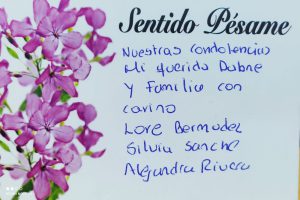 Sentido Pésame
Nuestras Condolencias
Mi querida Dafne
y Familia con
cariño
Lore Bermudez
Silvia Sanche
Alejandra Rivera